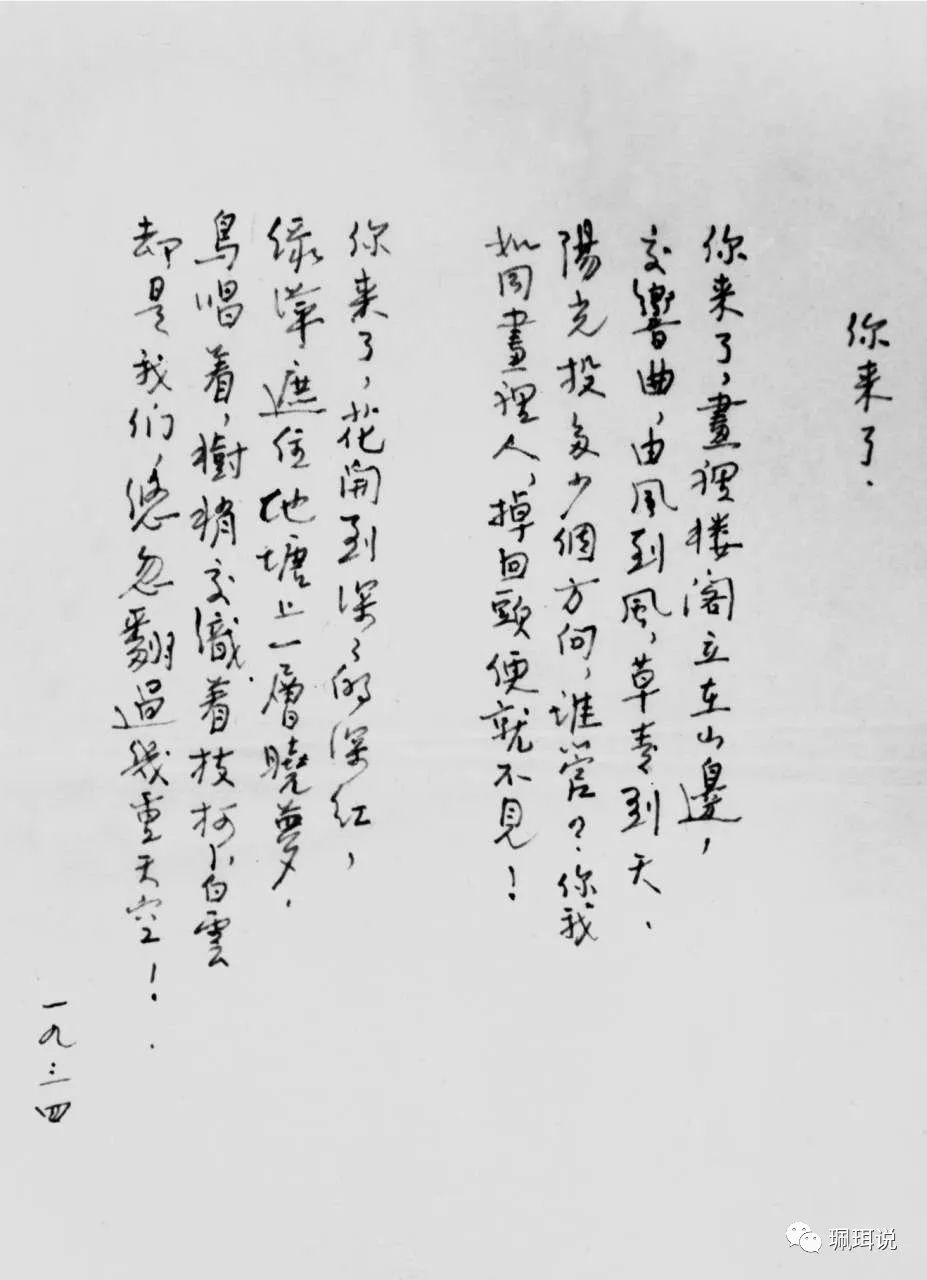 你来了.
你来了,畫裡楼阁立在山邊,
交響曲,由風到風,草青到天.
陽光投多少個方向,誰管?你我
如同畫裡人,掉回頭便就不見!
你来了,花開到深深的深红,
绿萍遮住池塘上一層曉夢.
鳥唱着,樹梢交織着枝柯,白雲
却是我们,悠忽翻過幾重天空!
一九三四
珮珥说